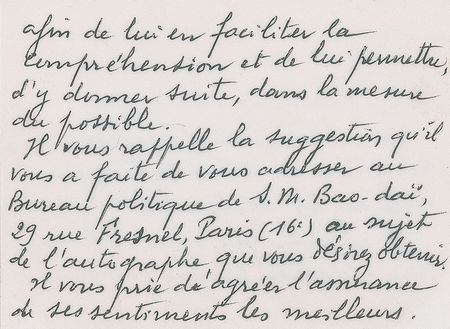 afin de lui en faciliter la
compréhension et de lui permettre,
d'y donner suite, dans la mesure
du possible.
Il vous rappelle la suggestion qu'il
vous a faite de vous adresser au
Bureau politique de S. M. Bao-daï,
29 rue Fresnel, Paris (16e) au sujet
de l'autographe que vous désirez obtenir.
Il vous prie d'agréer l'assurance
de ses sentiments les meilleurs.